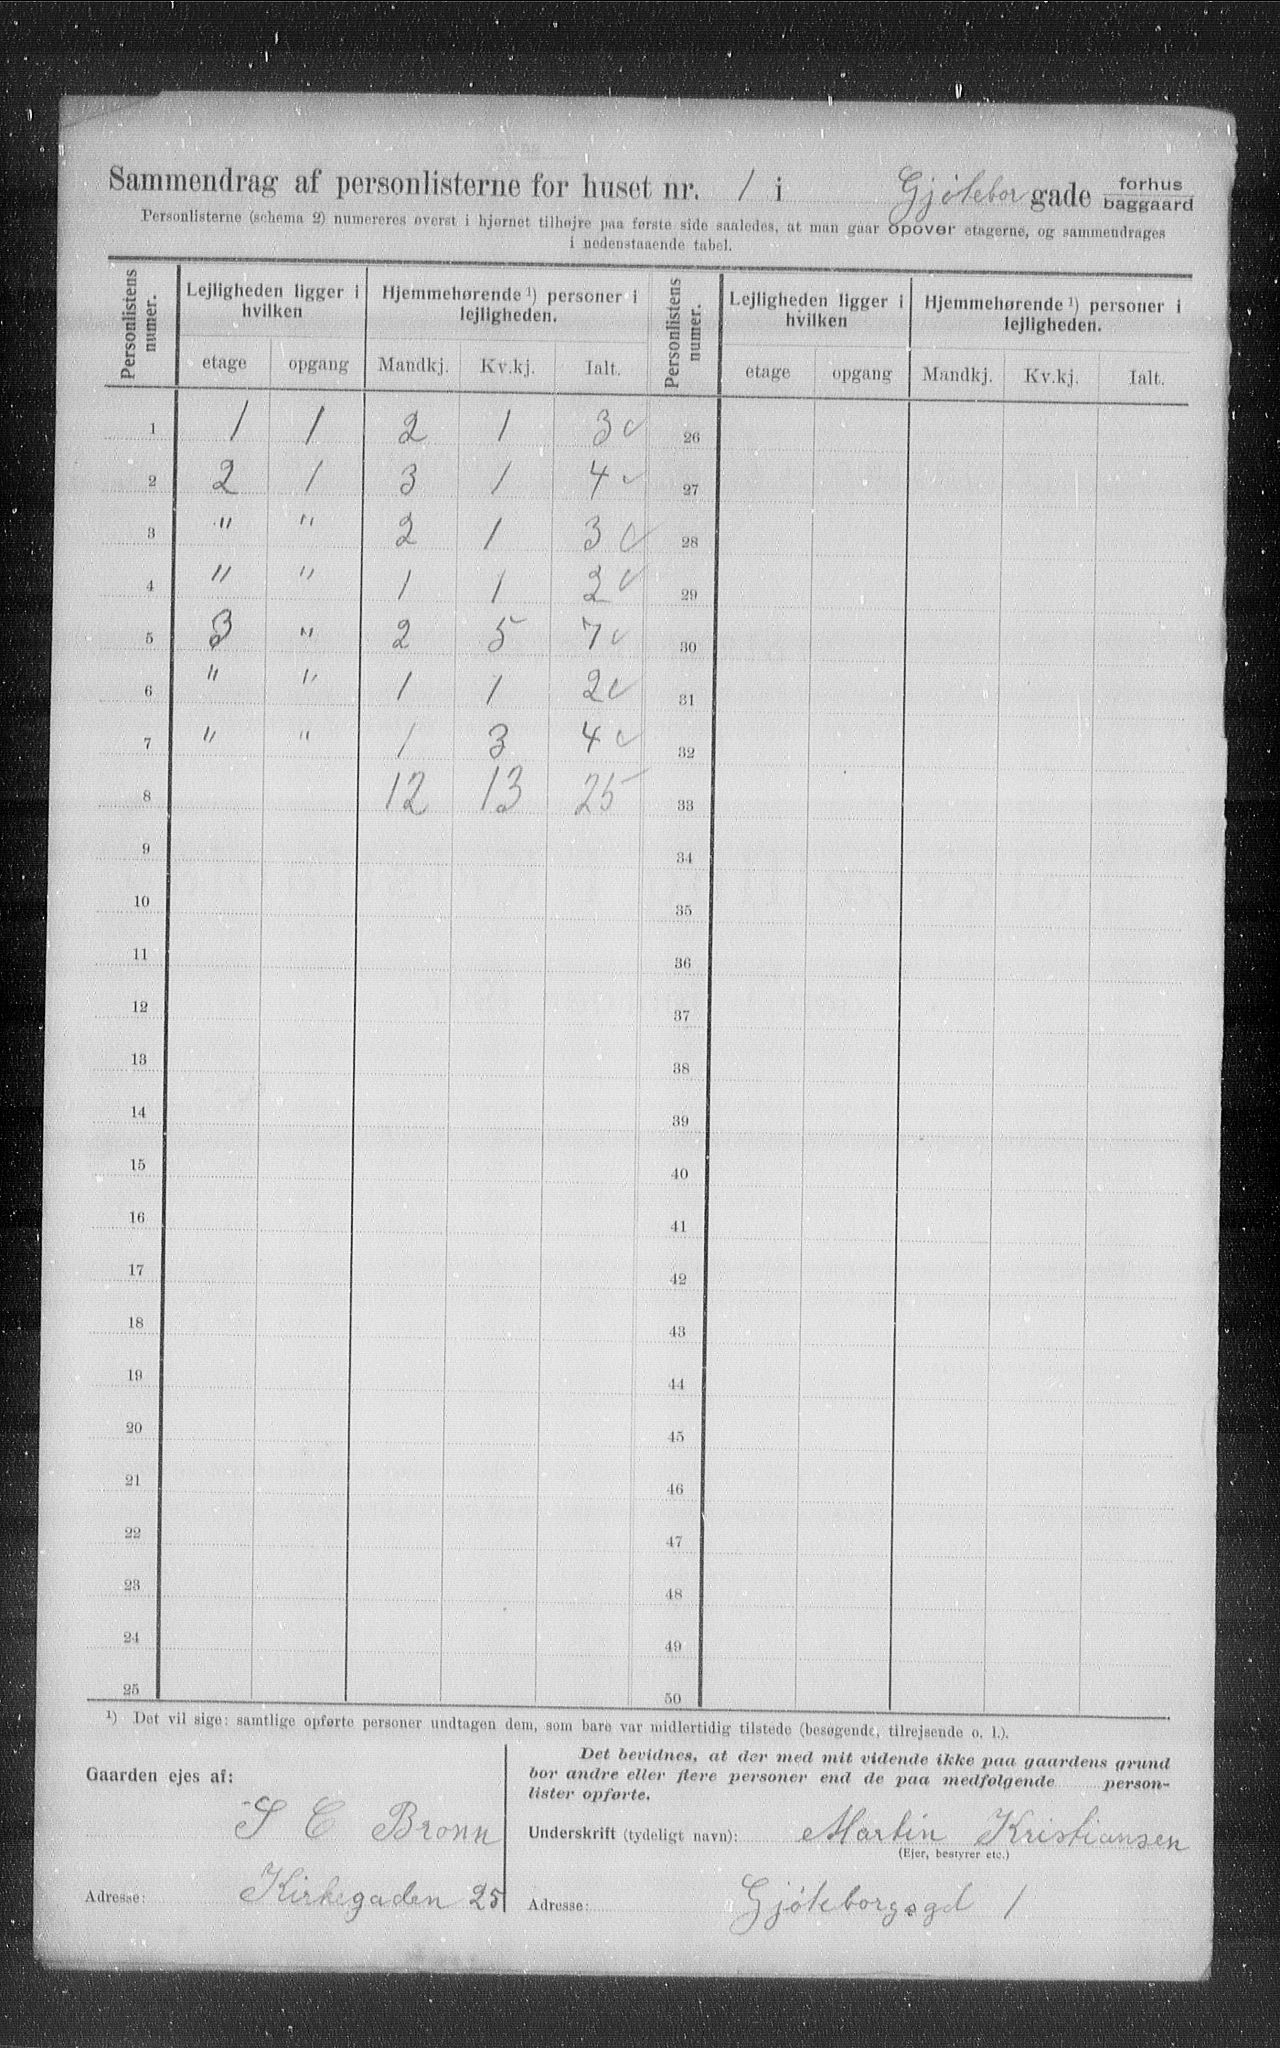 Sammendrag af personlisterne for huset nr. 1 i Gjötebor gade forhus
baggaard
Personlisterne (schema 2) numereres øverst i hjørnet tilhøjre paa første side saaledes, at man gaar opover etagerne, og sammendrages
i nedenstaaende tabel.
Personlistens numer. Lejligheden ligger i hvilken Hjemmehørende ¹) personer i lejligheden. Personlistens numer. Lejligheden ligger i hvilken Hjemmehørende ¹) personer i lejligheden.
etage opgang Mandkj. Kv.kj. Ialt. etage opgang Mandkj. Kv.kj. Ialt.
1 1 1 2 1 3 ✓ 26
2 2 1 3 1 4 ✓ 27
3 " " 2 1 3 ✓ 28
4 " " 1 1 2 ✓ 29
5 3 " 2 5 7 ✓ 30
6 " " 1 1 2 ✓ 31
7 " " 1 3 4 ✓ 32
8 12 13 25 33
9 34
10 35
11 36
12 37
13 38
14 39
15 40
16 41
17 42
18 43
19 44
20 45
21 46
22 47
23 48
24 49
25 50
¹) Det vil sige: samtlige opførte personer undtagen dem, som bare var midlertidig tilstede (besøgende, tilrejsende o. l.).
Gaarden ejes af:
S C Bronn
Adresse: Kirkegaden 25
Det bevidnes, at der med mit vidende ikke paa gaardens grund
bor andre eller flere personer end de paa medfølgende person-
lister opførte.
Underskrift (tydeligt navn): Martin Kristiansen
(Ejer, bestyrer etc.)
Adresse: Gjöteborgsgd 1